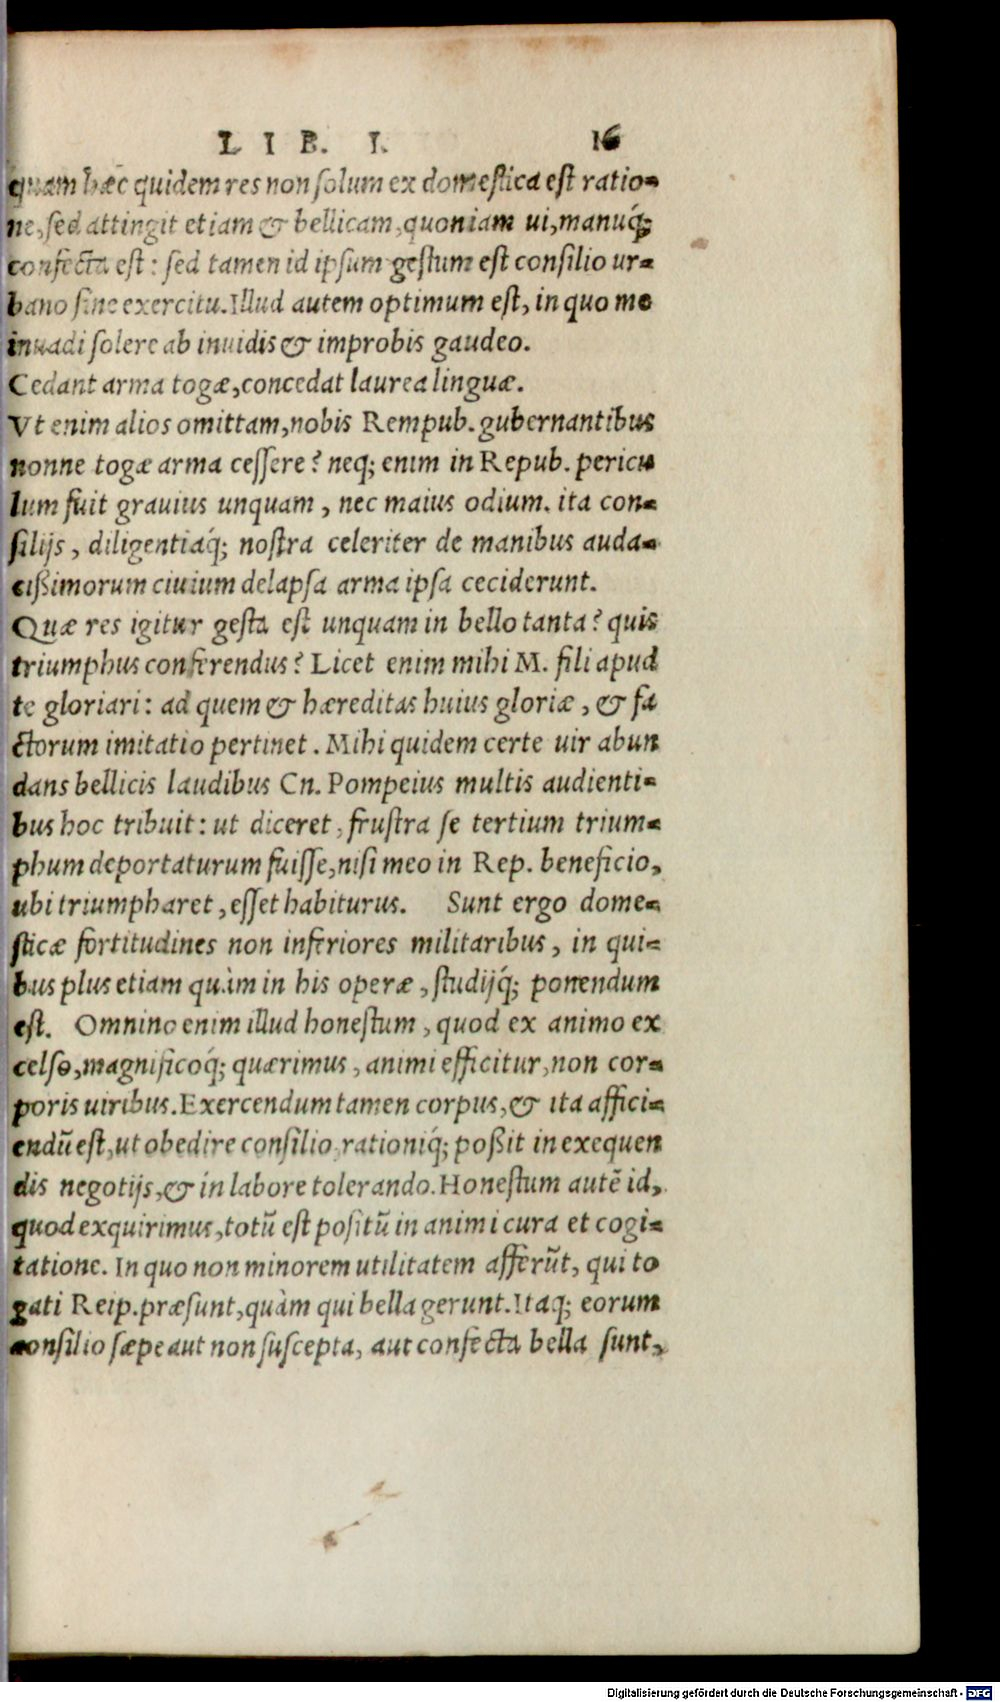 LIB. I. 16
quam hæc quidem res non solum ex domestica est ratio-
ne, sed attingit etiam & bellicam, quoniam ui, manuq́;
confecta est: sed tamen id ipsum gestum est consilio ur-
bano sine exercitu. Illud autem optimum est, in quo me
inuadi solere ab inuidis & improbis gaudeo.
Cedant arma togæ, concedat laurea linguæ.
Vt enim alios omittam, nobis Rempub. gubernantibus
nonne togæ arma cessere? neq; enim in Repub. pericu
lum fuit grauius unquam, nec maius odium. ita con-
silijs, diligentiáq́; nostra celeriter de manibus auda-
cißimorum ciuium delapsa arma ipsa ceciderunt.
Quæ res igitur gesta est unquam in bello tanta? quis
triumphus conferendus? Licet enim mihi M. fili apud
te gloriari: ad quem & hæreditas huius gloriæ, & fa
ctorum imitatio pertinet. Mihi quidem certe uir abun
dans bellicis laudibus Cn. Pompeius multis audienti-
bus hoc tribuit: ut diceret, frustra se tertium trium-
phum deportaturum fuisse, nisi meo in Rep. beneficio,
ubi triumpharet, esset habiturus. Sunt ergo dome-
sticæ fortitudines non inferiores militaribus, in qui-
bus plus etiam quàm in his operæ, studijq́; ponendum
est. Omnino enim illud honestum, quod ex animo ex
celso, magnificoq́; quærimus, animi efficitur, non cor-
poris uiribus. Exercendum tamen corpus, & ita affici-
endũ est, ut obedire consilio, rationiq́; poßit in exequen
dis negotijs, & in labore tolerando. Honestum autẽ id,
quod exquirimus, totũ est positũ in animi cura et cogi-
tatione. In quo non minorem utilitatem afferũt, qui to
gati Reip. præsunt, quàm qui bella gerunt. Itaq; eorum
consilio sæpe aut non suscepta, aut confecta bella sunt,
Digitalisierung gefördert durch die Deutsche Forschungsgemeinschaft - DFG